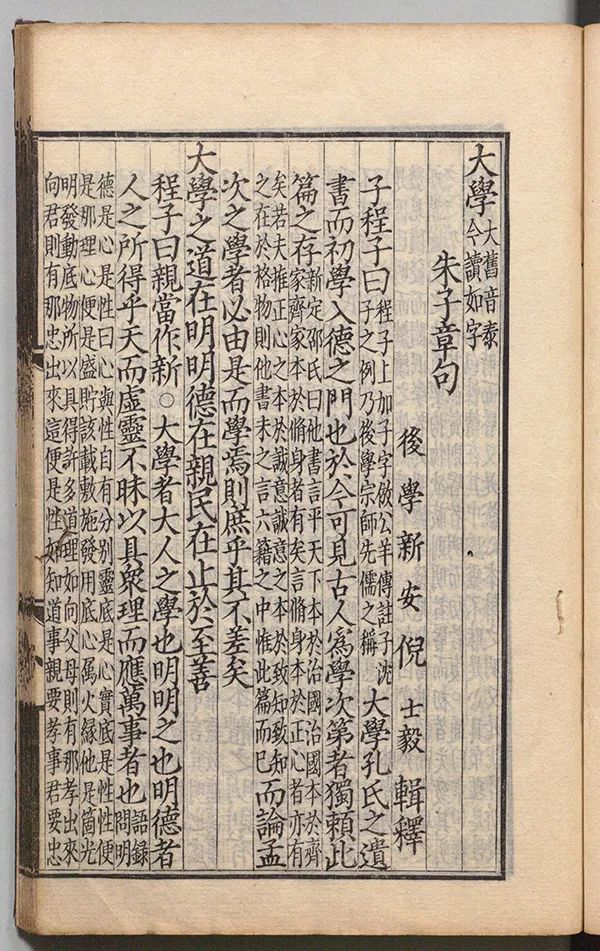 大學大舊音泰今讀如字
朱子章句
後學新安倪士毅輯釋
子程子曰程子上加子字倣公羊傳註子沈子之例乃後學宗師先儒之稱大學孔氏之遺
書而初學入德之門也於今可見古人爲學次第者獨賴此
篇之存新定邵氏曰他書言平天下本於治國治國本於齊家齊家本於脩身者有矣言脩身本於正心者亦有
矣若夫推正心之本於誠意誠意之本於致知致知之在於格物則他書未之言六籍之中惟此篇而已而論孟
次之學者必由是而學焉則庶乎其不差矣
大學之道在明明德在親民在止於至善
程子曰親當作新○大學者大人之學也明明之也明德者
人之所得乎天而虛靈不昧以具衆理而應萬事者也語錄問明
德是心是性曰心與性自有分別靈底是心實底是性性便是那理心便是盛貯該載敷施發用底心屬火緣他是箇光
明發動底物所以具得許多道理如向父母則有那孝出來向君則有那忠出來這便是性如知道事親要孝事君要忠